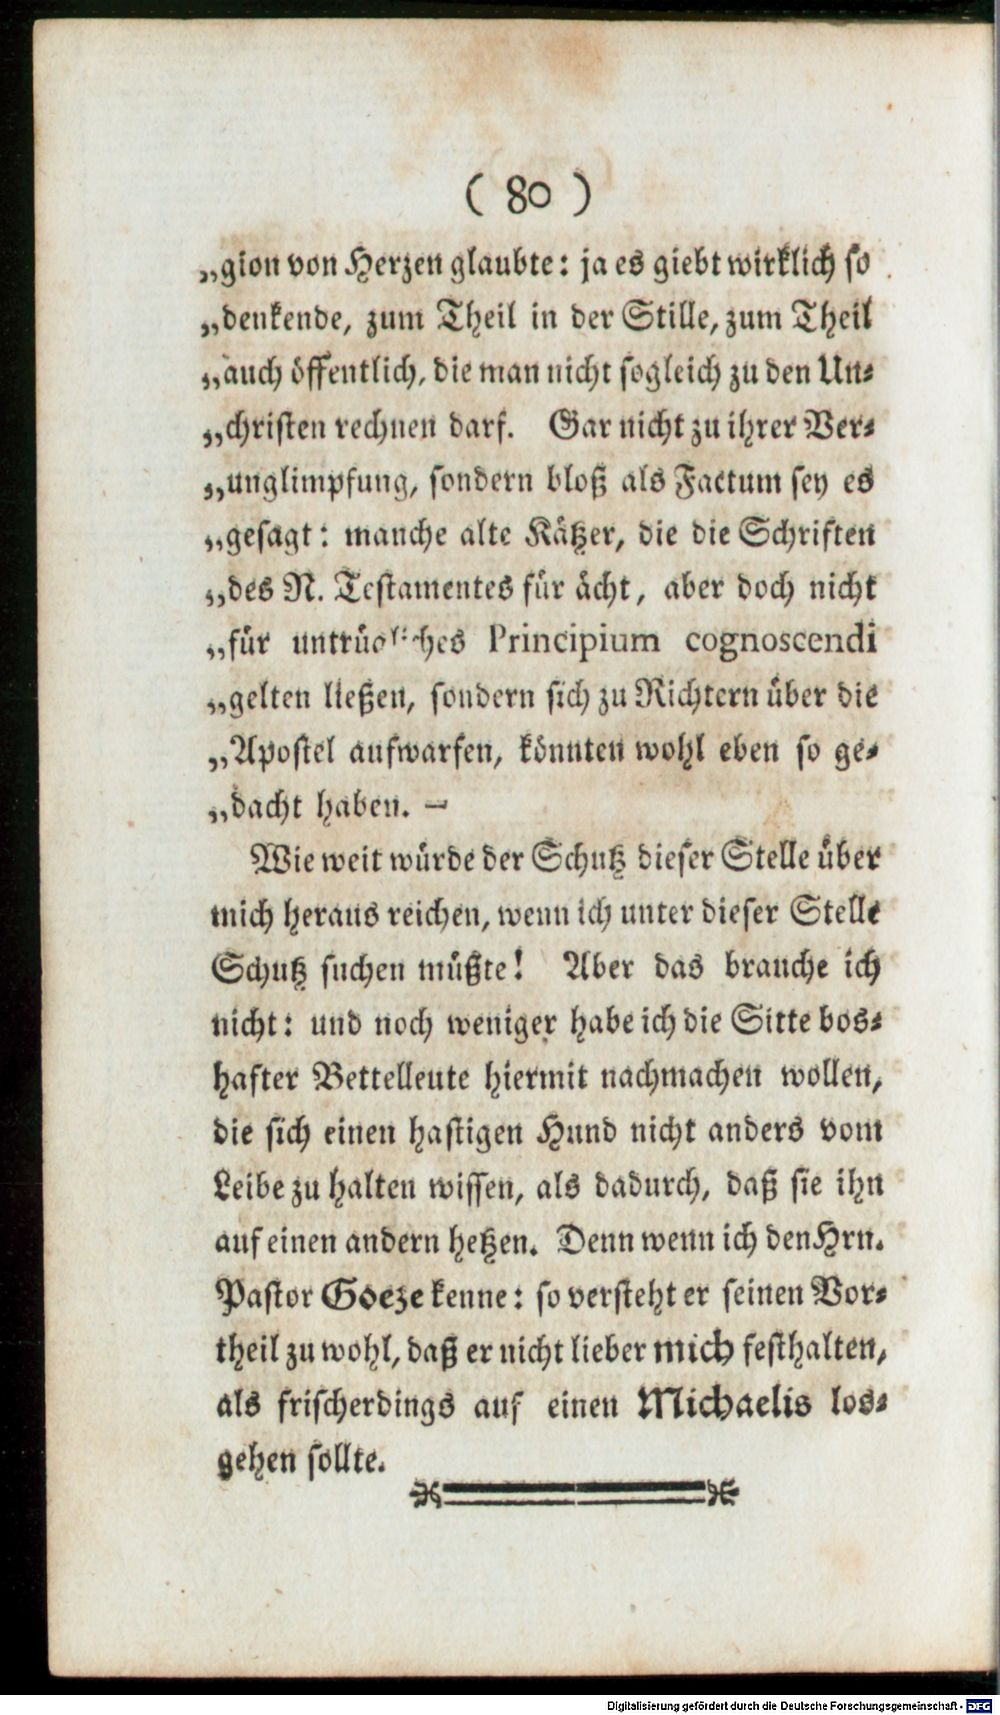 ( 80 )
„gion von Herzen glaubte: ja es giebt wirklich so
„denkende, zum Theil in der Stille, zum Theil
„auch öffentlich, die man nicht sogleich zu den Un⸗
„christen rechnen darf. Gar nicht zu ihrer Ver⸗
„unglimpfung, sondern bloß als Factum sey es
„gesagt: manche alte Kätzer, die die Schriften
„des N. Testamentes für ächt, aber doch nicht
„für untrügliches Principium cognoscendi
„gelten ließen, sondern sich zu Richtern über die
„Apostel aufwarfen, könnten wohl eben so ge⸗
„dacht haben. —
Wie weit würde der Schutz dieser Stelle über
mich heraus reichen, wenn ich unter dieser Stelle
Schutz suchen müßte! Aber das brauche ich
nicht: und noch weniger habe ich die Sitte bos⸗
hafter Bettelleute hiermit nachmachen wollen,
die sich einen hastigen Hund nicht anders vom
Leibe zu halten wissen, als dadurch, daß sie ihn
auf einen andern hetzen. Denn wenn ich den Hrn.
Pastor Goeze kenne: so versteht er seinen Vor⸗
theil zu wohl, daß er nicht lieber mich festhalten,
als frischerdings auf einen Michaelis los⸗
gehen sollte.
Digitalisierung gefördert durch die Deutsche Forschungsgemeinschaft - DFG